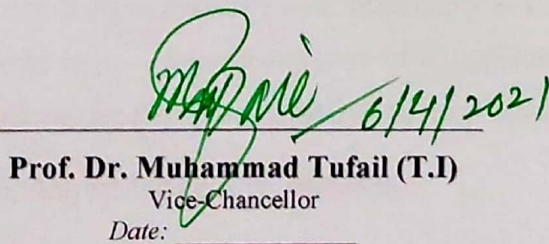 6/4/2021
Prof. Dr. Muhammad Tufail (T.I)
Vice-Chancellor
Date: